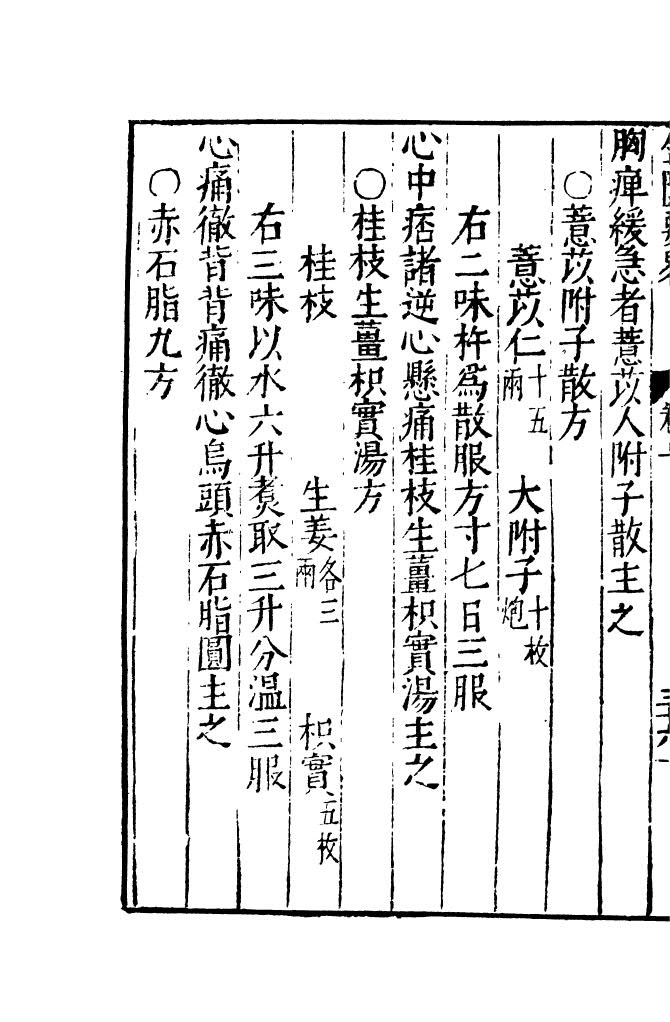 胸痺緩急者薏苡人附子散主之
〇薏苡附子散方
薏苡仁十五兩 大附子十枚炮
右二味杵為散服方寸七日三服
心中痞諸逆心懸痛桂枝生薑枳實湯主之
〇桂枝生薑枳實湯方
桂枝 生姜各三兩 枳實五枚
右三味以水六升煑取三升分温三服
心痛徹背背痛徹心烏頭赤石脂圓主之
〇赤石脂九方